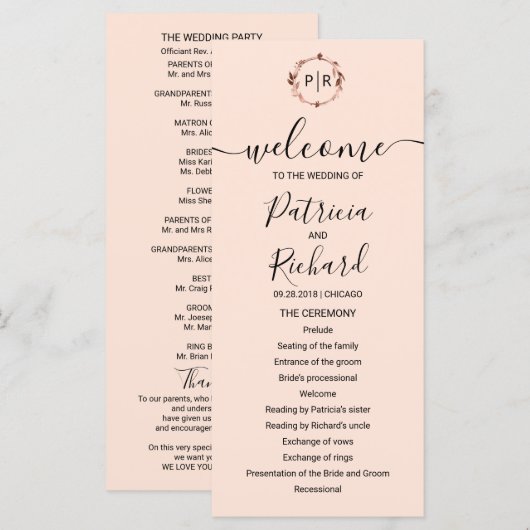 THE WEDDING PARTY
Officiant Rev.
PARENTS OF
Mr. and Mrs
GRANDPARENTS
Mr. Russ
MATRON O
Mrs. Alic
BRIDES
Miss Kari
Ms. Debb
FLOWE
Miss She
PARENTS OF
Mr. and Mrs R
GRANDPARENTS
Mrs. Alice
BEST
Mr. Craig
GROOM
Mr. Joesep
Mr. Mar
RING B
Mr. Brian
Than
To our parents, who
and unders
have given us
and encourage
On this very speci
we want yo
WE LOVE YOU
P|R
welcome
TO THE WEDDING OF
Patricia
AND
Richard
09.28.2018 | CHICAGO
THE CEREMONY
Prelude
Seating of the family
Entrance of the groom
Bride's processional
Welcome
Reading by Patricia's sister
Reading by Richard's uncle
Exchange of vows
Exchange of rings
Presentation of the Bride and Groom
Recessional